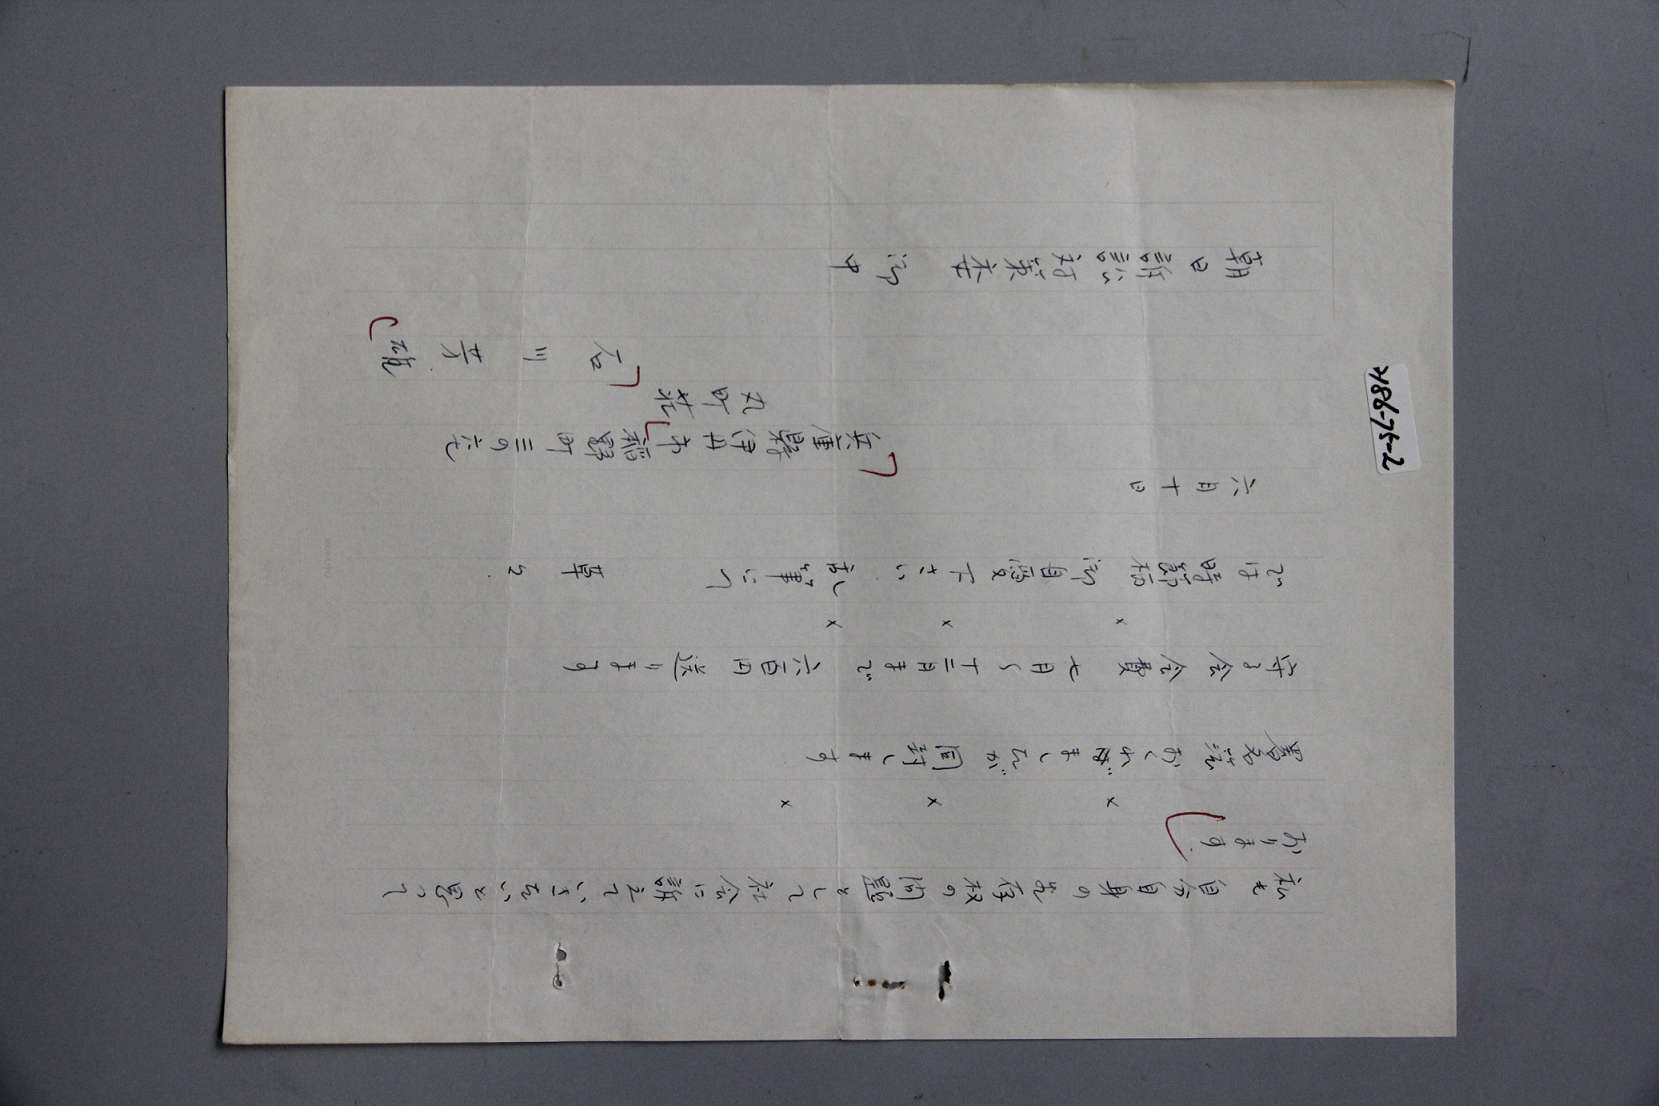 私も自分自身の生存权の問題として社会に訴えていきたいと思って
おります
× × ×
署名 おくれ ましたが 同封します
守る会会費 七月〜十二月まで 六百円送ります
× × ×
では 時節柄 御自愛下さい. 乱筆にて 草々.
六月十日
兵庫県伊丹市稲野町三の六七
町荘
石川 雄
朝日訴訟対策委 御中